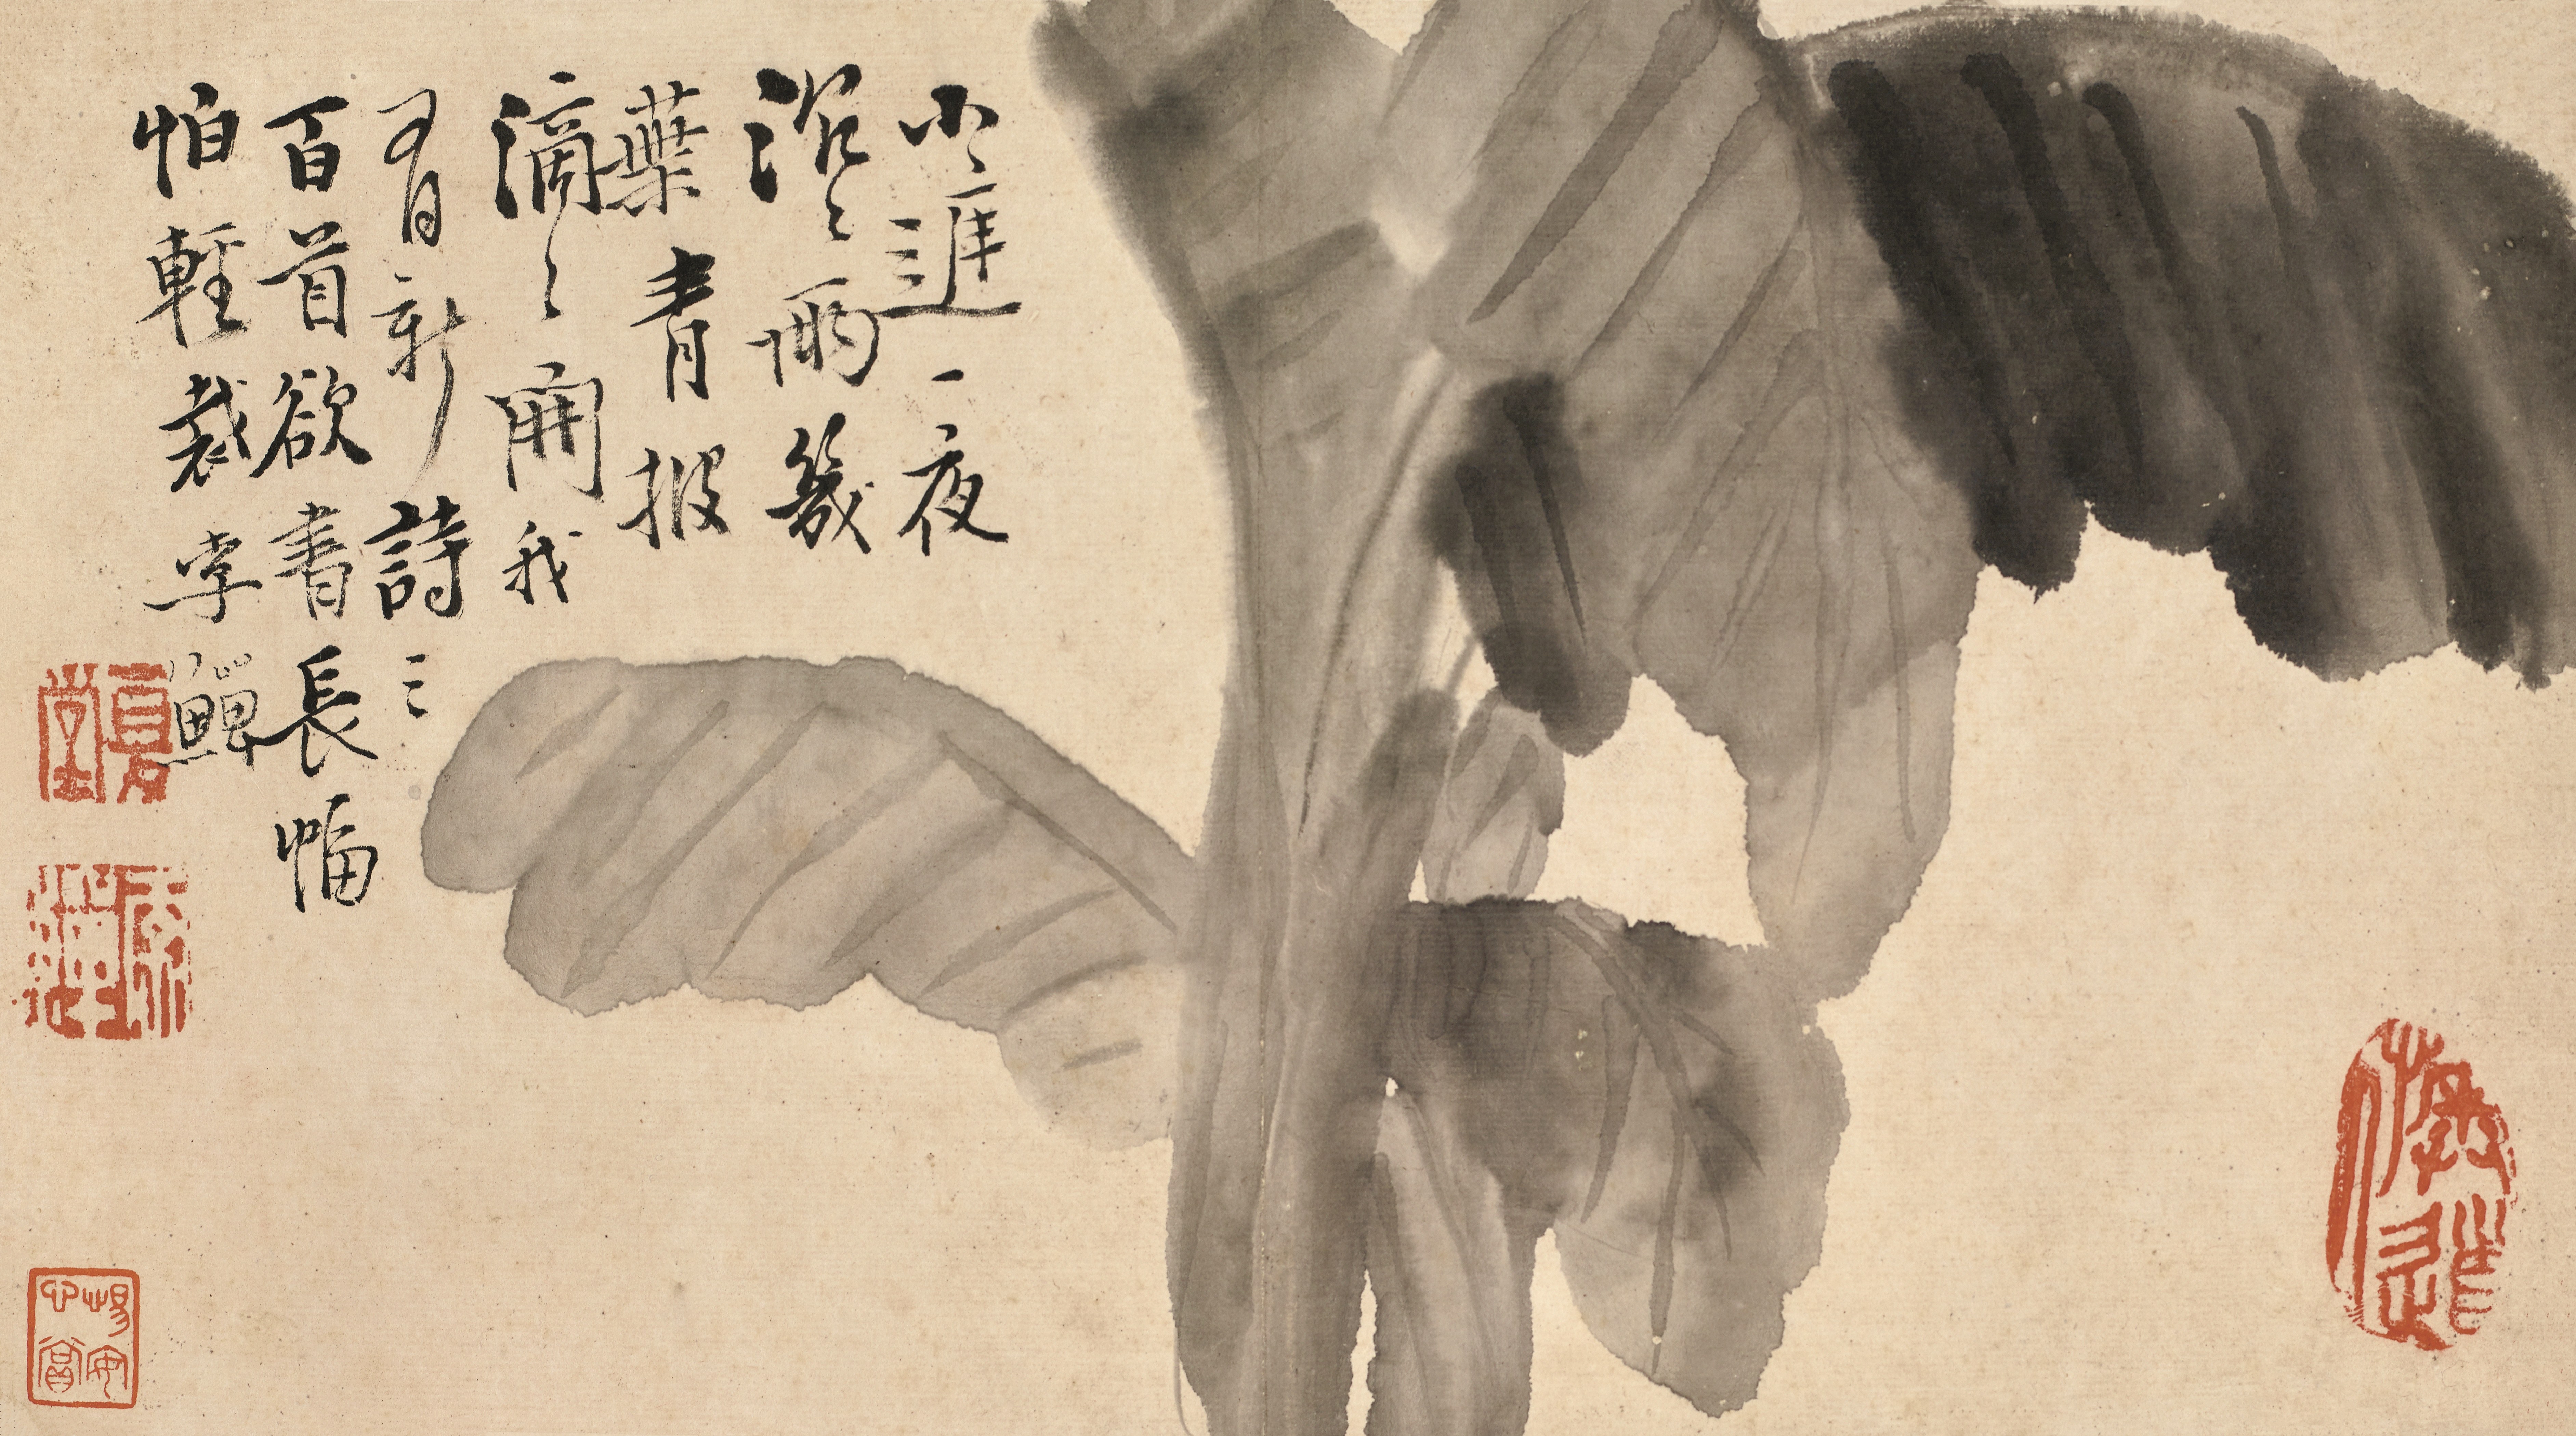 小庭一夜
沉〻雨幾
葉青披
滴〻開我
有新詩三
百首欲書長幅
怕輕裁李鱓